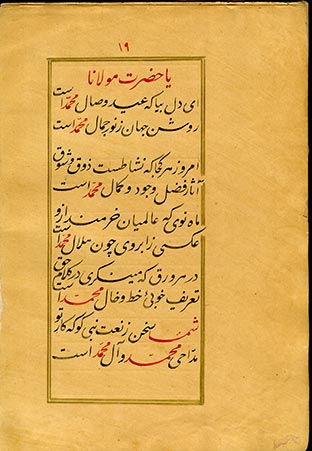 ۱۹
یا حضرت مولانا
ای دل بیا که عید وصال محمد است
روشن جهان ز نور جمال محمد است
امروز هر کجا که نشاطست ذوق و شوق
آثار فضل وجود و کمال محمد است
ماه نوی که عالمیان خرمند ازو
عکسی ز ابروی چون هلال محمد است
در هر ورق که مینگری در کلام حق
تعریف خوبی خط و خال محمد است
شمسا سخن ز نعت نبی گو که کار تو
مداحی محمد و آل محمد است